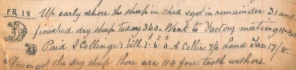 FR 18 Up early shore the sheep in shed eyed in remainder 31 and
finished dry sheep today 360. Went to Factory meeting 11-30
Paid A Collenge's bill 1- 6 0. A Collins ½ land tax 17/8-
the dry sheep there are 114 four tooth wethers.